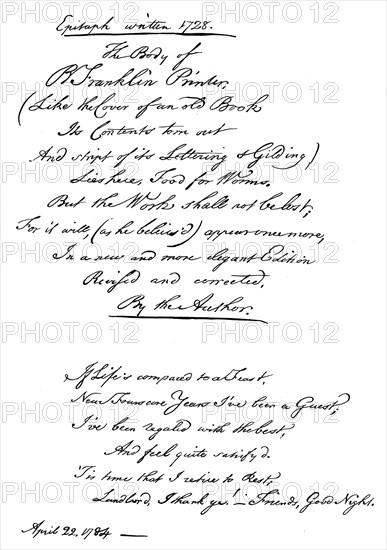 Epitaph written 1728.
The Body of
B Franklin Printer,
(Like the Cover of an old Book
Its Contents torn out
And stript of its Lettering & Gilding)
Lies here, Food for Worms.
But the Work shall not be lost;
For it will, (as he believ'd) appear once more,
In a new and more elegant Edition
Revised and corrected,
By the Author.
If Life's compared to a Feast,
Near Fourscore Years I've been a Guest;
I've been regaled with the best,
And feel quite satisfy'd.
'Tis time that I retire to Rest;
Landlord, I thank ye! — Friends, Good Night.
April 22, 1784 —
PHOTO 12